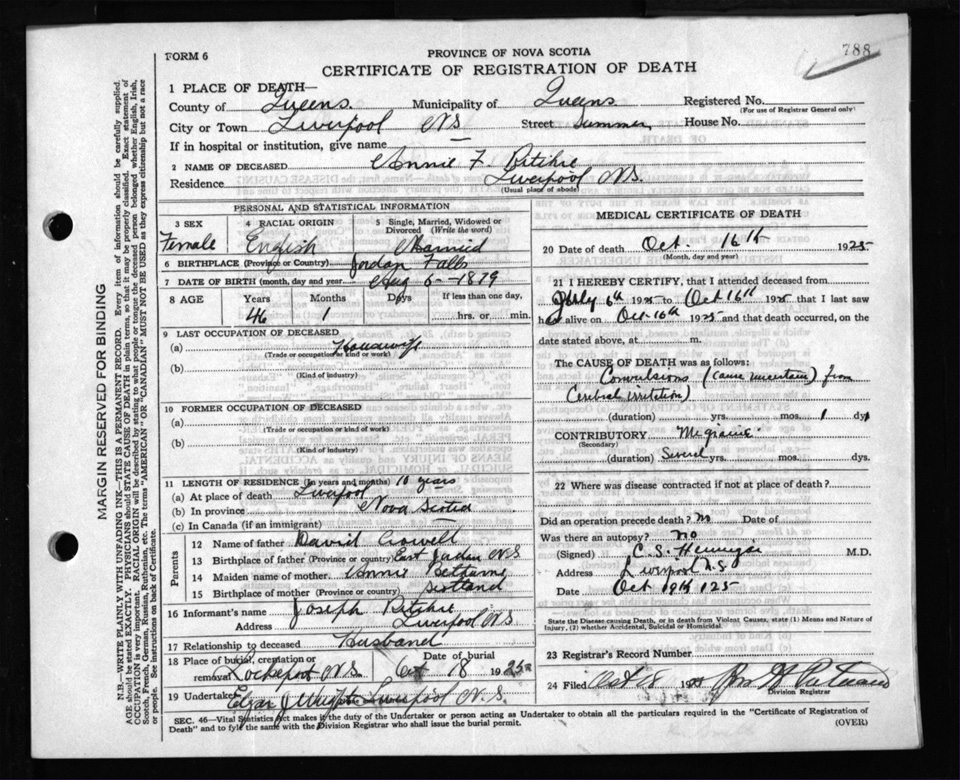 788
FORM 6
PROVINCE OF NOVA SCOTIA
CERTIFICATE OF REGISTRATION OF DEATH
MARGIN RESERVED FOR BINDING
N.B.—WRITE PLAINLY WITH UNFADING INK—THIS IS A PERMANENT RECORD. Every item of information should be carefully supplied.
AGE should be stated EXACTLY. PHYSICIANS should STATE CAUSE OF DEATH in plain terms, so that it may be properly classified. Exact statement of
OCCUPATION is very important. RACIAL ORIGIN will be described by stating to what people or tongue the deceased person belonged whether English, Irish,
Scotch, French, German, Russian, Ruthenian, etc. The terms "AMERICAN" OR "CANADIAN" MUST NOT BE USED as they express citizenship but not a race
or people. See instructions on back of Certificate.
1 PLACE OF DEATH—
County of Queens Municipality of Queens Registered No.
(For use of Registrar General only)
City or Town Liverpool NS Street Summer House No.
If in hospital or institution, give name
2 NAME OF DECEASED Annie F. Ritchie
Residence Liverpool NS.
(Usual place of abode)
PERSONAL AND STATISTICAL INFORMATION
3 SEX Female
4 RACIAL ORIGIN English
5 Single, Married, Widowed or Divorced (Write the word) Married
6 BIRTHPLACE (Province or Country) Jordan Falls
7 DATE OF BIRTH (month, day and year) Aug 6 - 1879
8 AGE Years Months Days If less than one day,
46 1 hrs. or min.
9 LAST OCCUPATION OF DECEASED
(a) Housewife
(Trade or occupation or kind of work)
(b)
(Kind of industry)
10 FORMER OCCUPATION OF DECEASED
(a)
(Trade or occupation or kind of work)
(b)
(Kind of industry)
11 LENGTH OF RESIDENCE (In years and months) 10 years
(a) At place of death Liverpool
(b) In province Nova Scotia
(c) In Canada (if an immigrant)
Parents
12 Name of father David Crowell
13 Birthplace of father (Province or country) East Jordan NS
14 Maiden name of mother Annie Bethune
15 Birthplace of mother (Province or country) Scotland
16 Informant's name Joseph Ritchie
Address Liverpool NS
17 Relationship to deceased Husband
18 Place of burial, cremation or removal Lockeport NS. Date of burial Oct 18 1925
19 Undertaker Edgar J Wright Liverpool N.S.
MEDICAL CERTIFICATE OF DEATH
20 Date of death Oct. 16th 1925
(Month, day and year)
21 I HEREBY CERTIFY, that I attended deceased from
July 6th 1925 to Oct 16th 1925 that I last saw
h alive on Oct 16th 1925 and that death occurred, on the
date stated above, at m.
The CAUSE OF DEATH was as follows:
Convulsions (cause uncertain) from
Cerebral irritation)
(duration) yrs. mos. 1 dys
CONTRIBUTORY Migraine
(Secondary)
(duration) Several yrs. mos. dys.
22 Where was disease contracted if not at place of death?
Did an operation precede death? No Date of
Was there an autopsy? No
(Signed) C. S. M.D.
Address Liverpool N.S
Date Oct 19th 125
State the Disease causing Death, or in death from Violent Causes, state (1) Means and Nature of
Injury, (2) whether Accidental, Suicidal or Homicidal.
23 Registrar's Record Number
24 Filed Oct 18 1925
Division Registrar
SEC. 46—Vital Statistics Act makes it the duty of the Undertaker or person acting as Undertaker to obtain all the particulars required in the "Certificate of Registration of
Death" and to file the same with Division Registrar who shall issue the burial permit. (OVER)